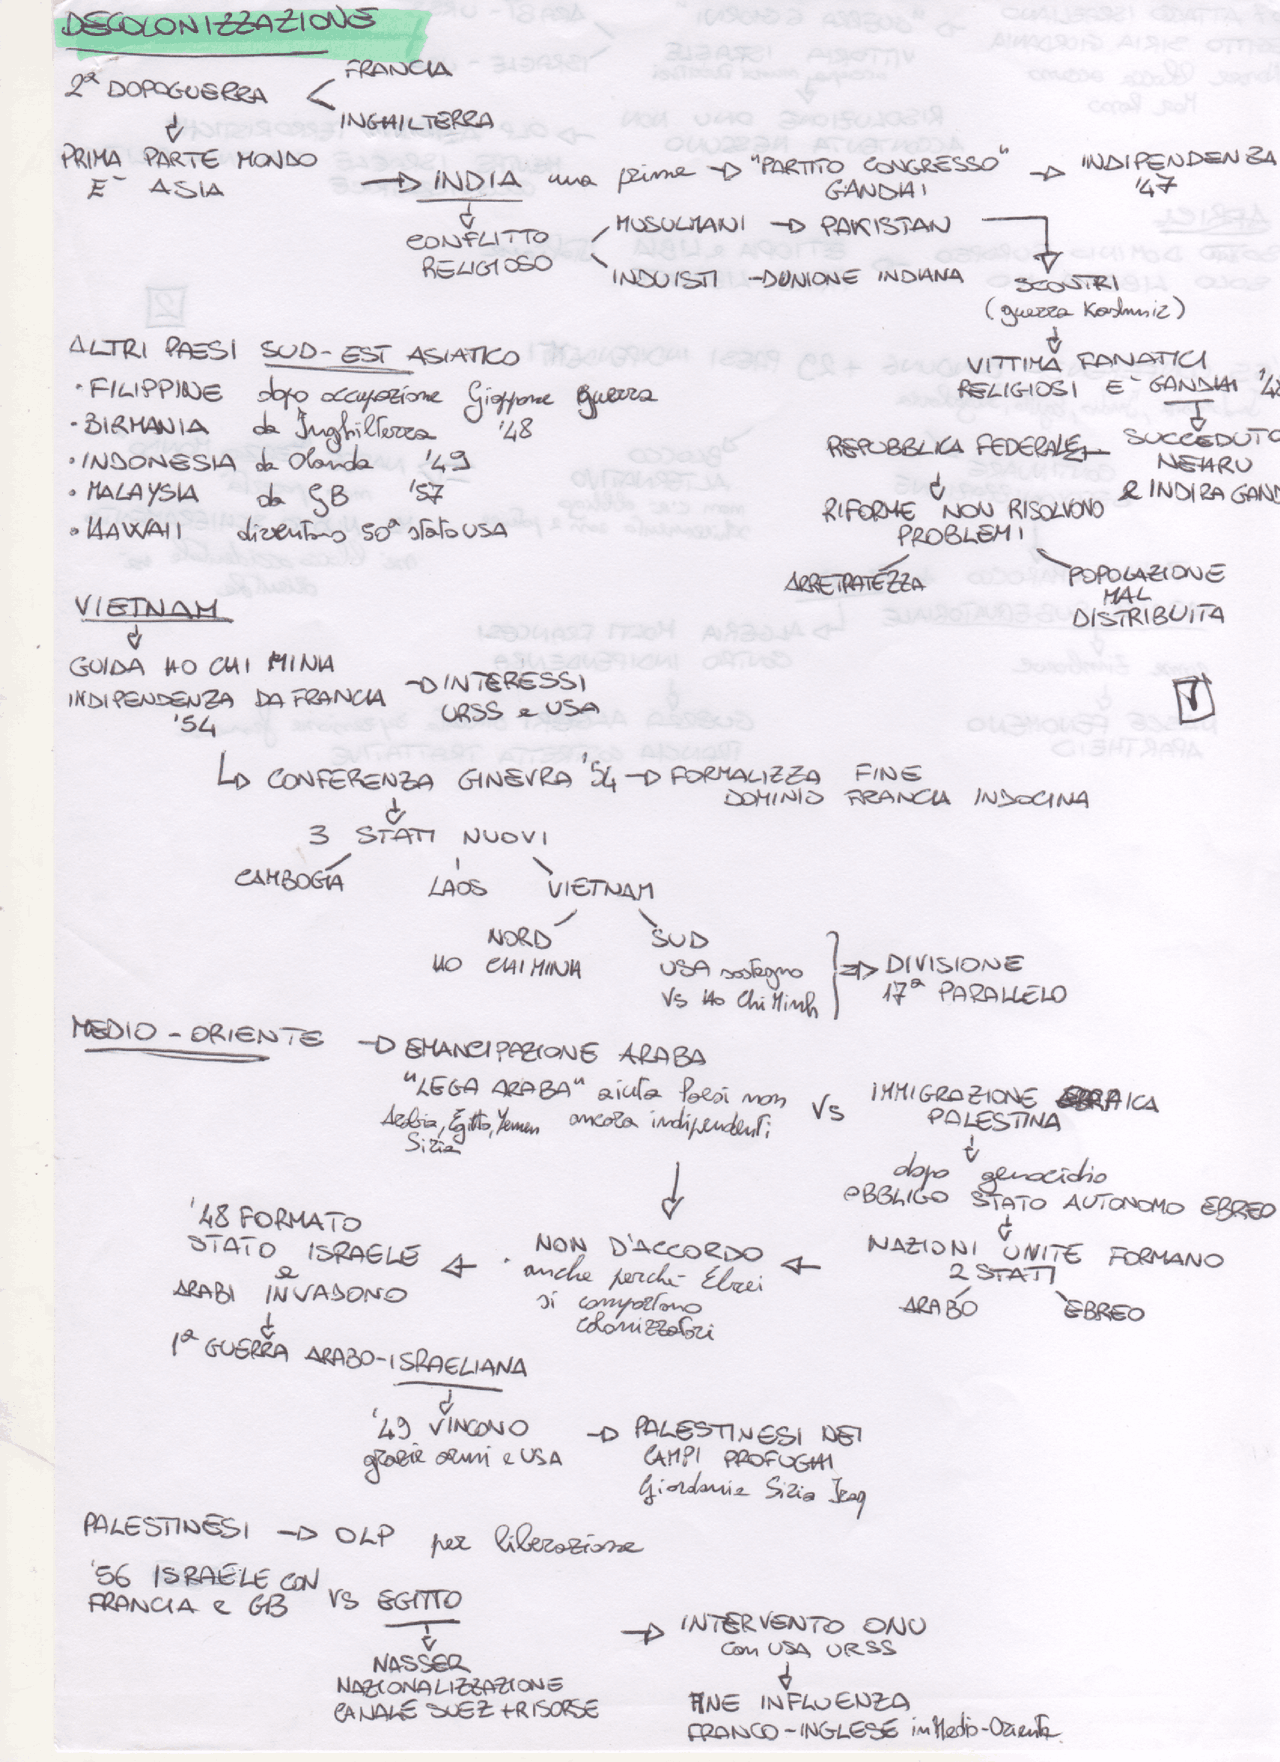 DECOLONIZZAZIONE
2ª DOPOGUERRA
FRANCIA
INGHILTERRA
PRIMA PARTE MONDO
E' ASIA
INDIA una prime "PARTITO CONGRESSO"
GANDHI
INDIPENDENZA
'47
CONFLITTO
RELIGIOSO
MUSULMANI PAKISTAN
INDUISTI UNIONE INDIANA
SCONTRI
(guerra Kashmir)
VITTIMA FANATICI
RELIGIOSI E' GANDHI '48
SUCCEDUTO
NEHRU
e INDIRA GAND
REPUBBLICA FEDERALE
RIFORME NON RISOLVONO
PROBLEMI
ARRETRATEZZA
POPOLAZIONE
MAL
DISTRIBUITA
1
ALTRI PAESI SUD-EST ASIATICO
• FILIPPINE dopo occupazione Giappone guerra
• BIRMANIA da Inghilterra '48
• INDONESIA da Olanda '49
• MALAYSIA da GB '57
• HAWAII diventano 50º stato USA
VIETNAM
GUIDA HO CHI MINH
INDIPENDENZA DA FRANCIA
'54
INTERESSI
URSS e USA
CONFERENZA GINEVRA '54 FORMALIZZA FINE
DOMINIO FRANCIA INDOCINA
3 STATI NUOVI
CAMBOGIA LAOS VIETNAM
NORD
HO CHI MINH
SUD
USA sostegno
vs Ho Chi Minh
DIVISIONE
17ª PARALLELO
MEDIO-ORIENTE EMANCIPAZIONE ARABA
"LEGA ARABA" aiuta Paesi non
ancora indipendenti
Arabia, Egitto, Yemen
Siria
VS IMMIGRAZIONE EBRAICA
PALESTINA
dopo genocidio
OBBLIGO STATO AUTONOMO EBREO
NAZIONI UNITE FORMANO
2 STATI
ARABO EBREO
NON D'ACCORDO
anche perché Ebrei
si comportano
colonizzatori
'48 FORMATO
STATO ISRAELE
e
ARABI INVADONO
1ª GUERRA ARABO-ISRAELIANA
'49 VINCONO
grazie armi e USA
PALESTINESI NEI
CAMPI PROFUGHI
Giordania Siria Iraq
PALESTINESI OLP per liberazione
'56 ISRAELE CON
FRANCIA e GB VS EGITTO
NASSER
NAZIONALIZZAZIONE
CANALE SUEZ + RISORSE
INTERVENTO ONU
con USA URSS
FINE INFLUENZA
FRANCO-INGLESE in Medio-Oriente